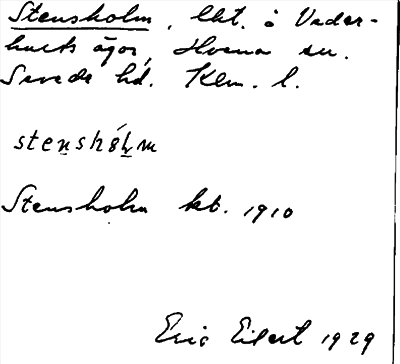 Stensholm, lht. å Veder-
hults ägor, Hvena sn.
Sevede hd. Klm. l.
stenshólm
Stensholm kt. 1910
Eric Eilert 1929